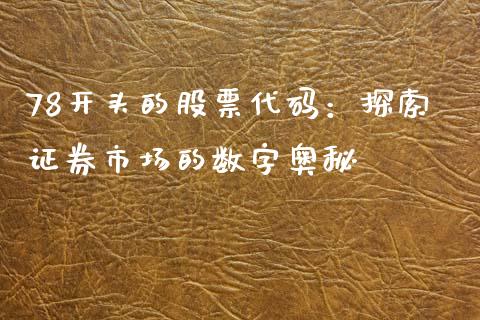 78开头的股票代码：探索
证券市场的数字奥秘